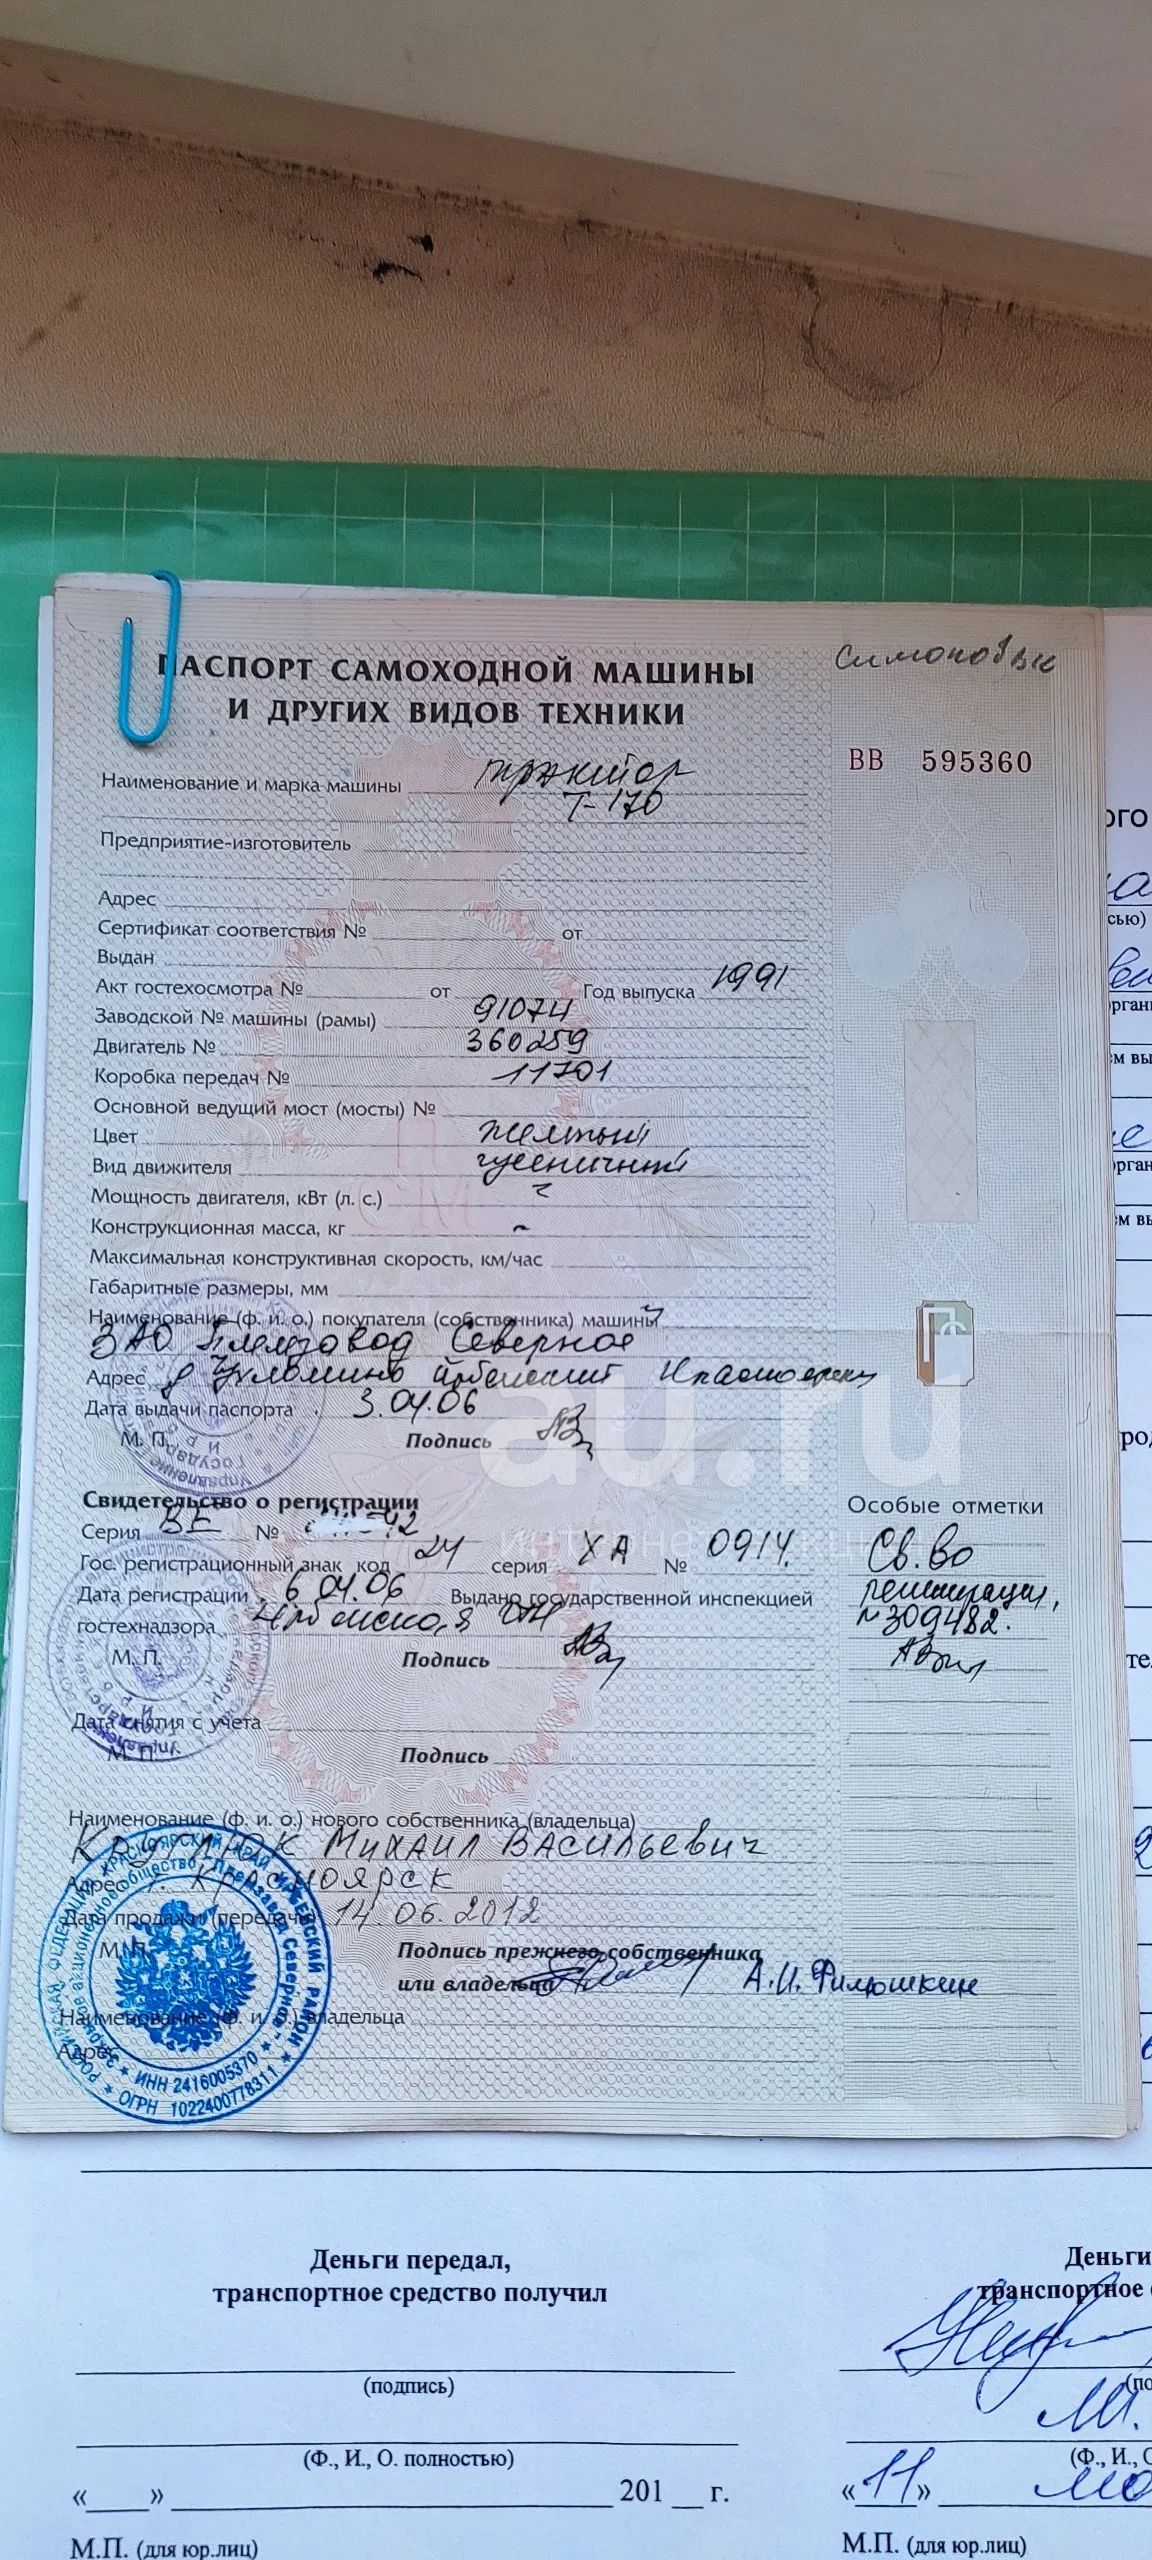 Симоновы
ПАСПОРТ САМОХОДНОЙ МАШИНЫ
И ДРУГИХ ВИДОВ ТЕХНИКИ
ВВ 595360
Наименование и марка машины трактор
Т-170
Предприятие-изготовитель
Адрес
Сертификат соответствия № от
Выдан
Акт гостехосмотра № от Год выпуска 1991
Заводской № машины (рамы) 91074
Двигатель № 360259
Коробка передач № 11701
Основной ведущий мост (мосты) №
Цвет желтый
Вид движителя гусеничный
Мощность двигателя, кВт (л. с.)
Конструкционная масса, кг
Максимальная конструктивная скорость, км/час
Габаритные размеры, мм
Наименование (ф. и. о.) покупателя (собственника) машины
ЗАО Племзавод Северное
Адрес
Дата выдачи паспорта 3.04.06
М. П. Подпись
au.ru
Свидетельство о регистрации
Особые отметки
Серия ВЕ №
Гос. регистрационный знак код 24 серия ХА № 0914.
Св.во
регистрации,
№309482.
Дата регистрации 6.04.06 Выдано государственной инспекцией
гостехнадзора
М. П. Подпись
Дата снятия с учета
М. П. Подпись
Наименование (ф. и. о.) нового собственника (владельца)
Круглюк Михаил Васильевич
Адрес г. Красноярск
Дата продажи (передачи) 14.06.2012
М. П. Подпись прежнего собственника
или владельца А.И. Филюшкин
Наименование (ф. и. о.) владельца
Адрес
ИНН 2416005370
ОГРН 1022400778311
Деньги передал,
транспортное средство получил
(подпись)
(Ф., И., О. полностью)
«___» 201 __ г.
М.П. (для юр.лиц)
Деньги
транспортное
(Ф., И., О
«11»
М.П. (для юр.лиц)